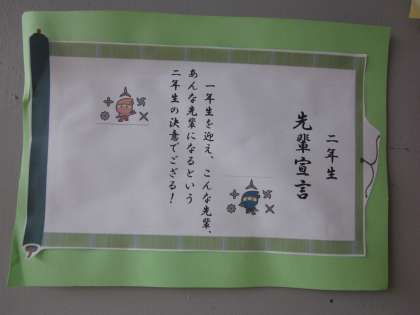 二年生
先輩宣言
一年生を迎え、こんな先輩、
あんな先輩になるという
二年生の決意でござる！